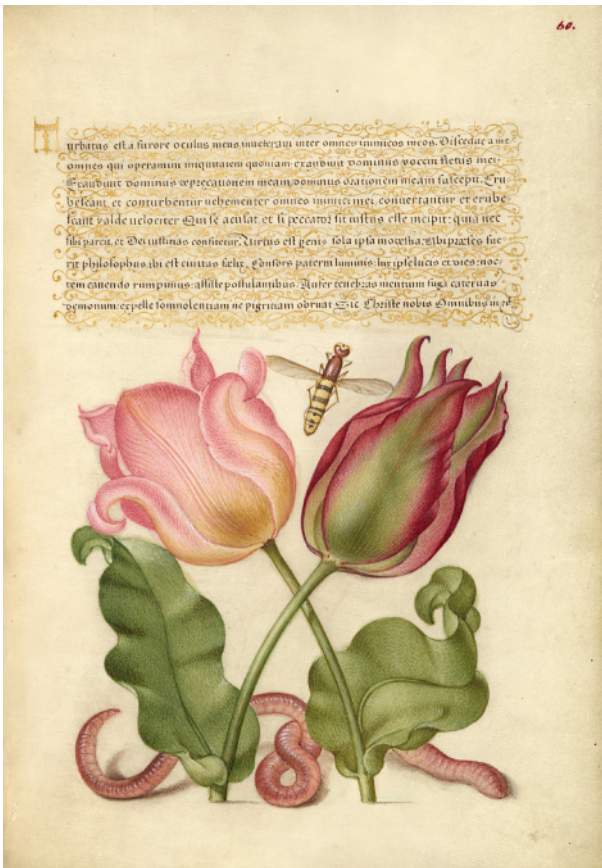 60.
Turbatus est a furore oculus meus inueteraui inter omnes inimicos meos. Discedite a me
omnes qui operamini iniquitatem quoniam exaudiuit dominus vocem fletus mei.
Exaudiuit dominus deprecationem meam, dominus orationem meam suscepit. Eru
bescant, et conturbentur vehementer omnes inimici mei, conuertantur et erube
scant valde velociter Qui se acusat, et si peccator sit iustus esse incipit: quia nec
sibi parcit, et Dei iustitias confitetur. Virtus est penis sola ipsa molestia. Vbi præses fue
rit philosophus, ibi est ciuitas felix. Consors paterni luminis: lux ipse lucis et dies: noc-
tem canendo rumpimus: assiste postulantibus. Aufer tenebras mentium fuga cateruas
demonum: expelle somnolentiam ne pigritiam obruat Sic Christe nobis Omnibus